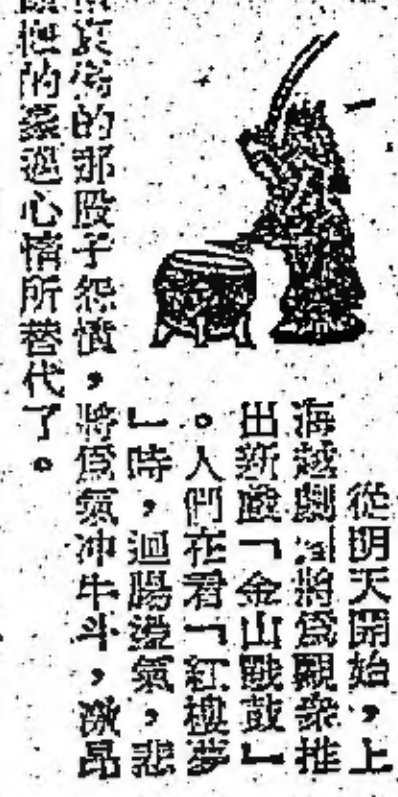 從明天開始，上
海越劇團將爲觀衆推
出新戲「金山戰鼓」
。人們在看「紅樓夢
」時，迴腸盪氣，悲
哀傷的那股子怨憤，將爲氣冲牛斗，激昂
的豪邁心情所替代了。